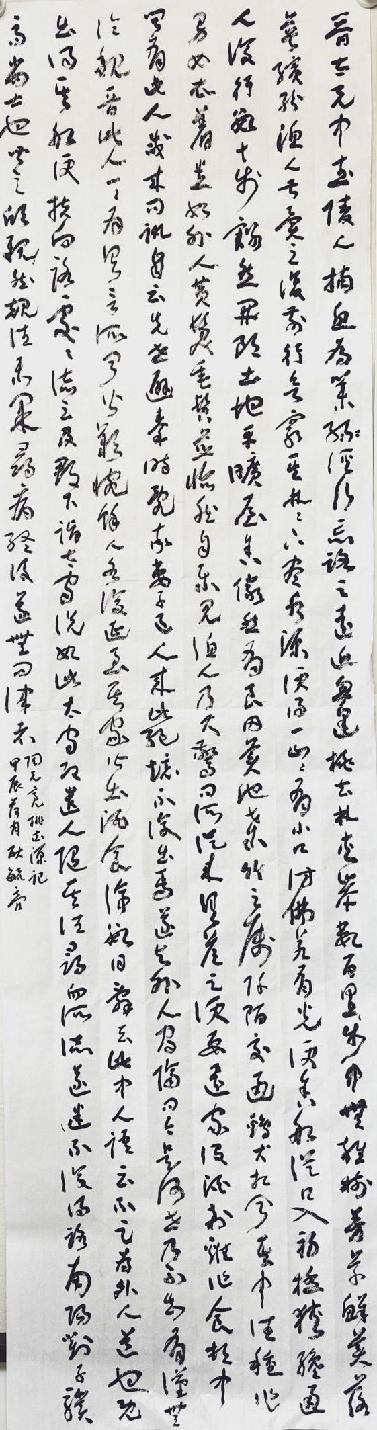 晋太元中武陵人捕魚為業缘溪行忘路之遠近忽逢桃花林夹岸數百步中無雜樹芳草鲜美落
英繽紛渔人甚異之復前行欲窮其林々盡水源便得一山々有小口彷彿若有光便舍船從口入初極狹纔通
人復行數十步豁然開朗土地平曠屋舍儼然有良田美池桑竹之属阡陌交通鷄犬相聞其中往種作
男女衣著悉如外人黄髮垂髫並怡然自樂見渔人乃大驚問所從来具答之便要還家設酒殺雞作食村中
聞有此人咸来問訊自云先世避秦時亂率妻子邑人来此絶境不復出焉遂與外人間隔問今是何世乃不知有漢無
論魏晋此人一々為具言所聞皆歎惋餘人各復延至其家皆出酒食停數日辭去此中人語云不足為外人道也既
出得其船便扶向路處々誌之及郡下詣太守説如此太守即遣人隨其往尋向所誌遂迷不復得路南陽劉子驥
高尚士也聞之欣然規往未果尋病終後遂無問津者
陶元亮桃花源記
甲辰荷月耿毓亮